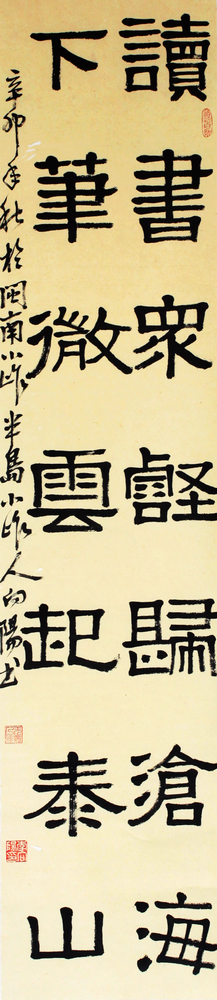 讀書眾壑歸滄海
下筆微雲起泰山
辛卯年秋於閩南小作半島小作人向陽书